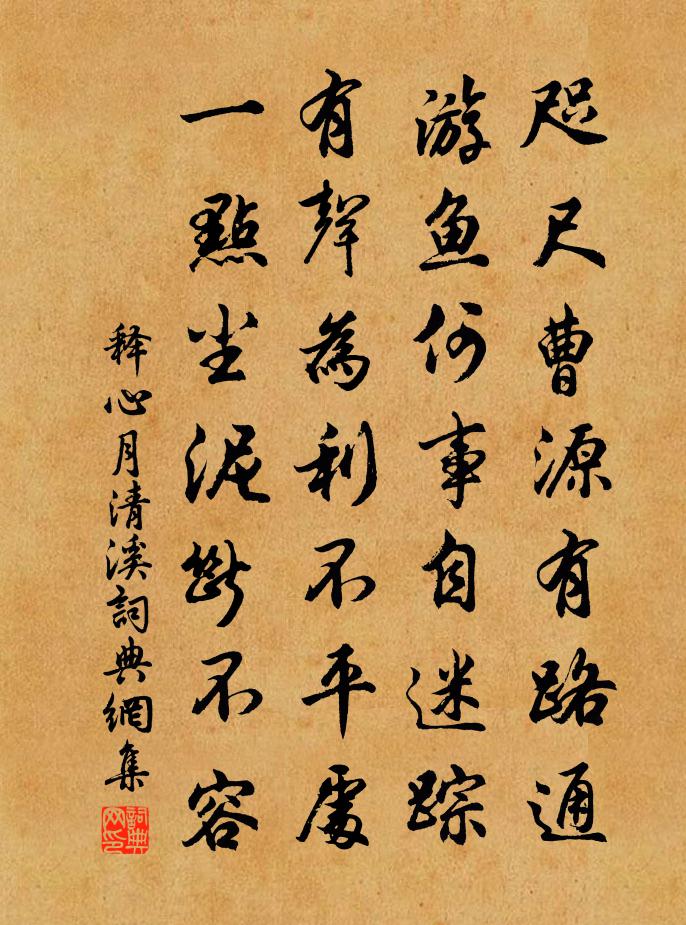 咫尺曹源有路通
游魚何事自迷踪
有聲為利不平處
一點尘泥斷不容
释心月清溪詞典網集
詞典网印